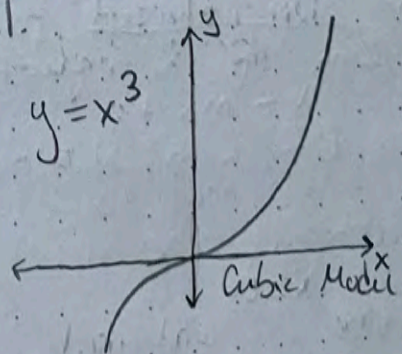 1.
y
y = x³
x
Cubic Model